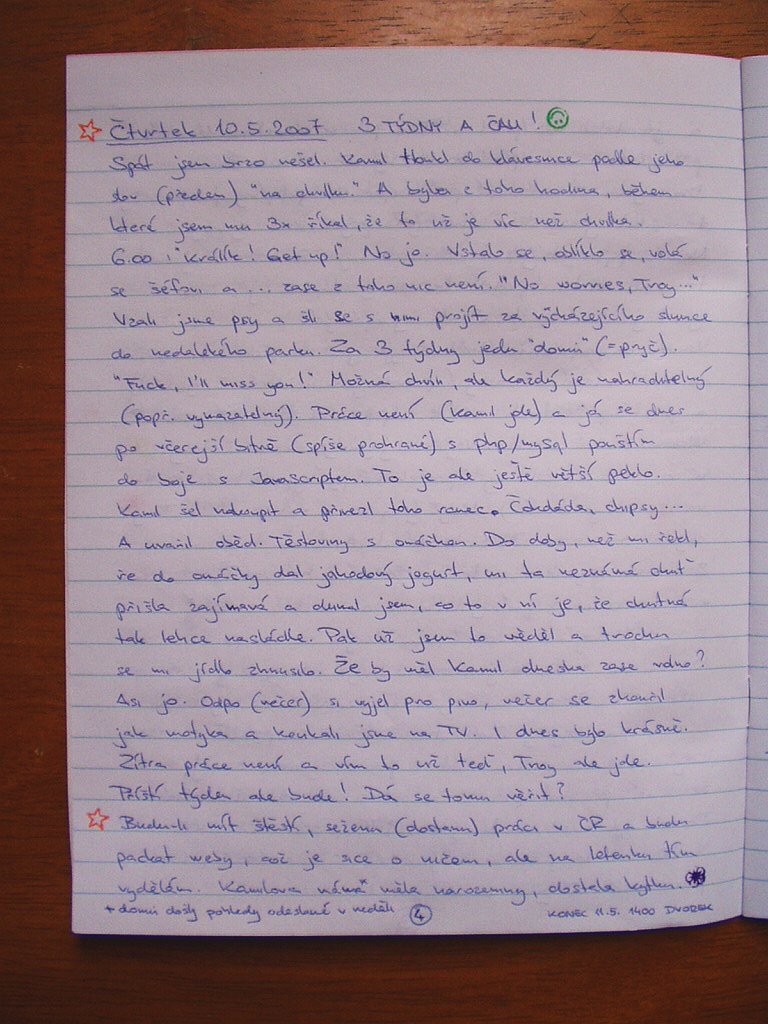 Čtvrtek 10.5.2007 3 TÝDNY A ČAU!
Spát jsem brzo nešel. Kamil tloukl do klávesnice podle jeho
slov (předem) "na chvilku." A byla z toho hodina, během
které jsem mu 3x říkal, že to už je víc než chvilka.
6.00 : "Králík! Get up!" No jo. Vstalo se, obléklo se, volá
se šéfovi a ... zase z toho nic není. "No worries, Troy..."
Vzali jsme psy a šli se s nimi projít za vycházejícího slunce
do nedalekého parku. Za 3 týdny jedu "domů" (=pryč).
"Fuck, I'll miss you!" Možná chvíli, ale každý je nahraditelný
(popř. vymazatelný). Práce není (Kamil jde) a já se dnes
po včerejší bitvě (spíše prohrané) s php/mysql pouštím
do boje s Javascriptem. To je ale ještě větší peklo.
Kamil šel nakoupit a přivezl toho ranec. Čokoláda, chipsy...
A uvařil oběd. Těstoviny s omáčkou. Do doby, než mi řekl,
že do omáčky dal jahodový jogurt, mi ta neznámá chuť
přišla zajímavá a dumal jsem, co to v ní je, že chutná
tak lehce nasládle. Pak už jsem to věděl a trochu
se mi jídlo zhnusilo. Že by měl Kamil dneska zase volno?
Asi jo. Odpo (večer) si vyjel pro pivo, večer se zkouřil
jak motyka a koukali jsme na TV. I dnes bylo krásně.
Zítra práce není a vím to už teď, Troy ale jde.
Příští týden ale bude! Dá se tomu věřit?
Budu-li mít štěstí, seženu (dostanu) práci v ČR a budu
packat weby, což je sice o ničem, ale na letenku tím
vydělám. Kamilova máma měla narozeniny, dostala kytku.
+ domů došly pohledy odeslané v neděli 4 KONEC 11.5. 1400 DVOREK